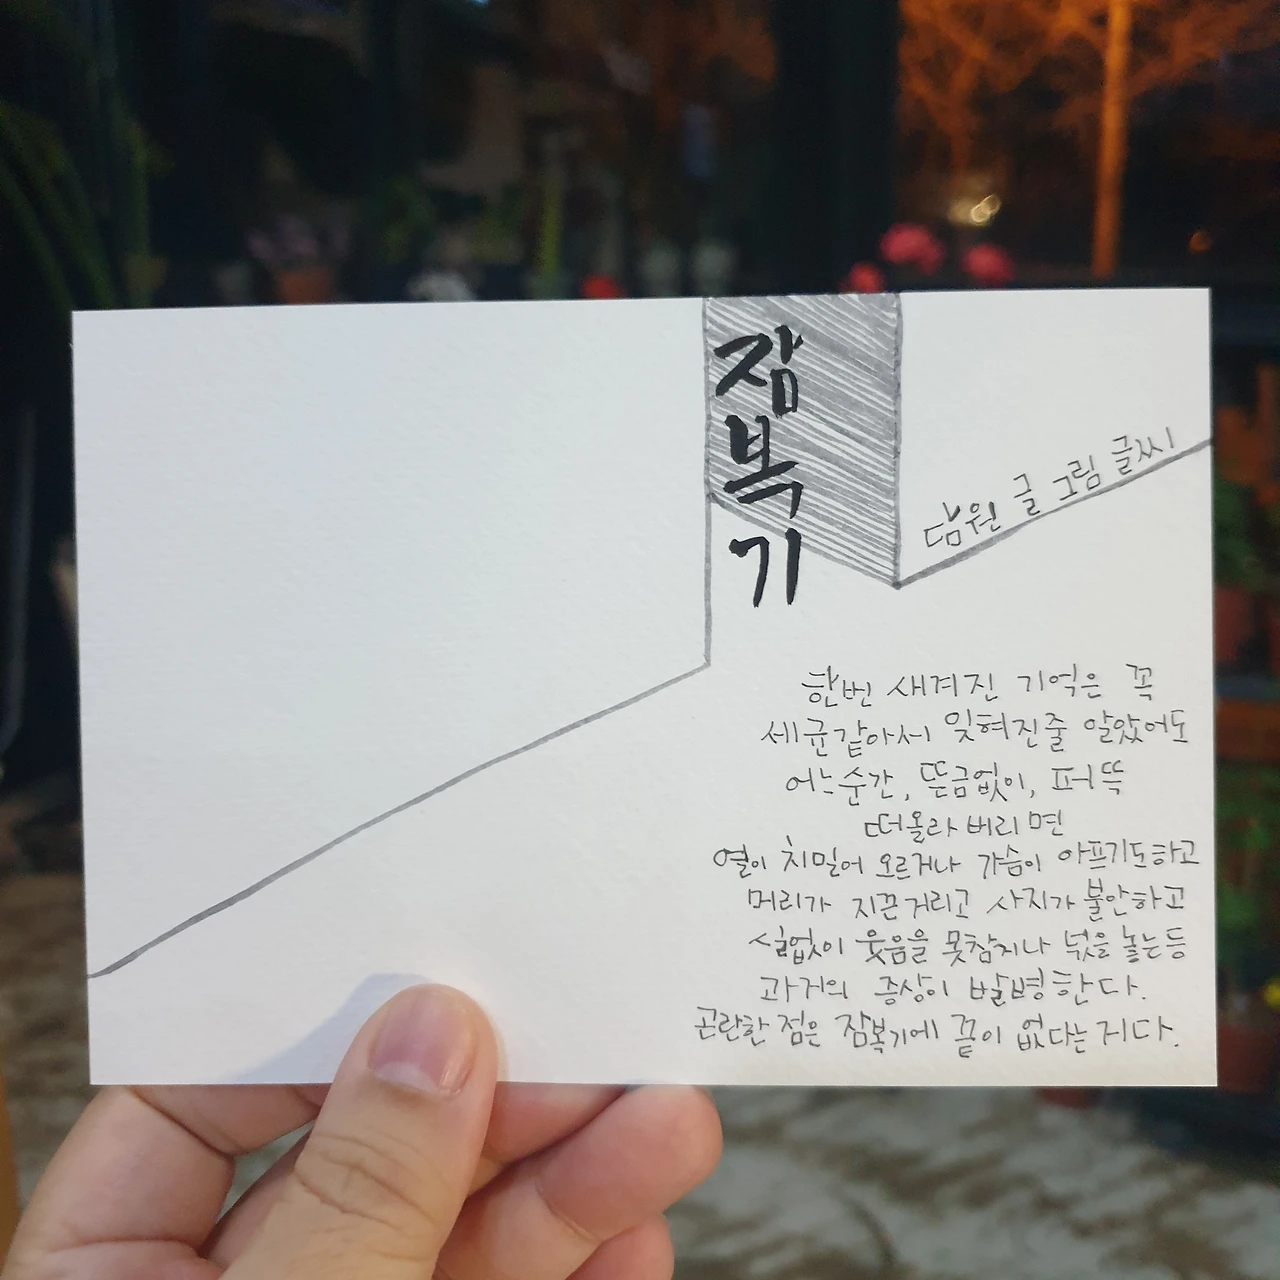 잠복기
담원 글 그림 글씨
한번 새겨진 기억은 꼭
세균같아서 잊혀진줄 알았어도
어느순간, 뜬금없이, 퍼뜩
떠올라 버리면
열이 치밀어 오르거나 가슴이 아프기도하고
머리가 지끈거리고 사지가 불안하고
실없이 웃음을 못참거나 넋을 놓는등
과거의 증상이 발병한다.
곤란한 점은 잠복기에 끝이 없다는 거다.